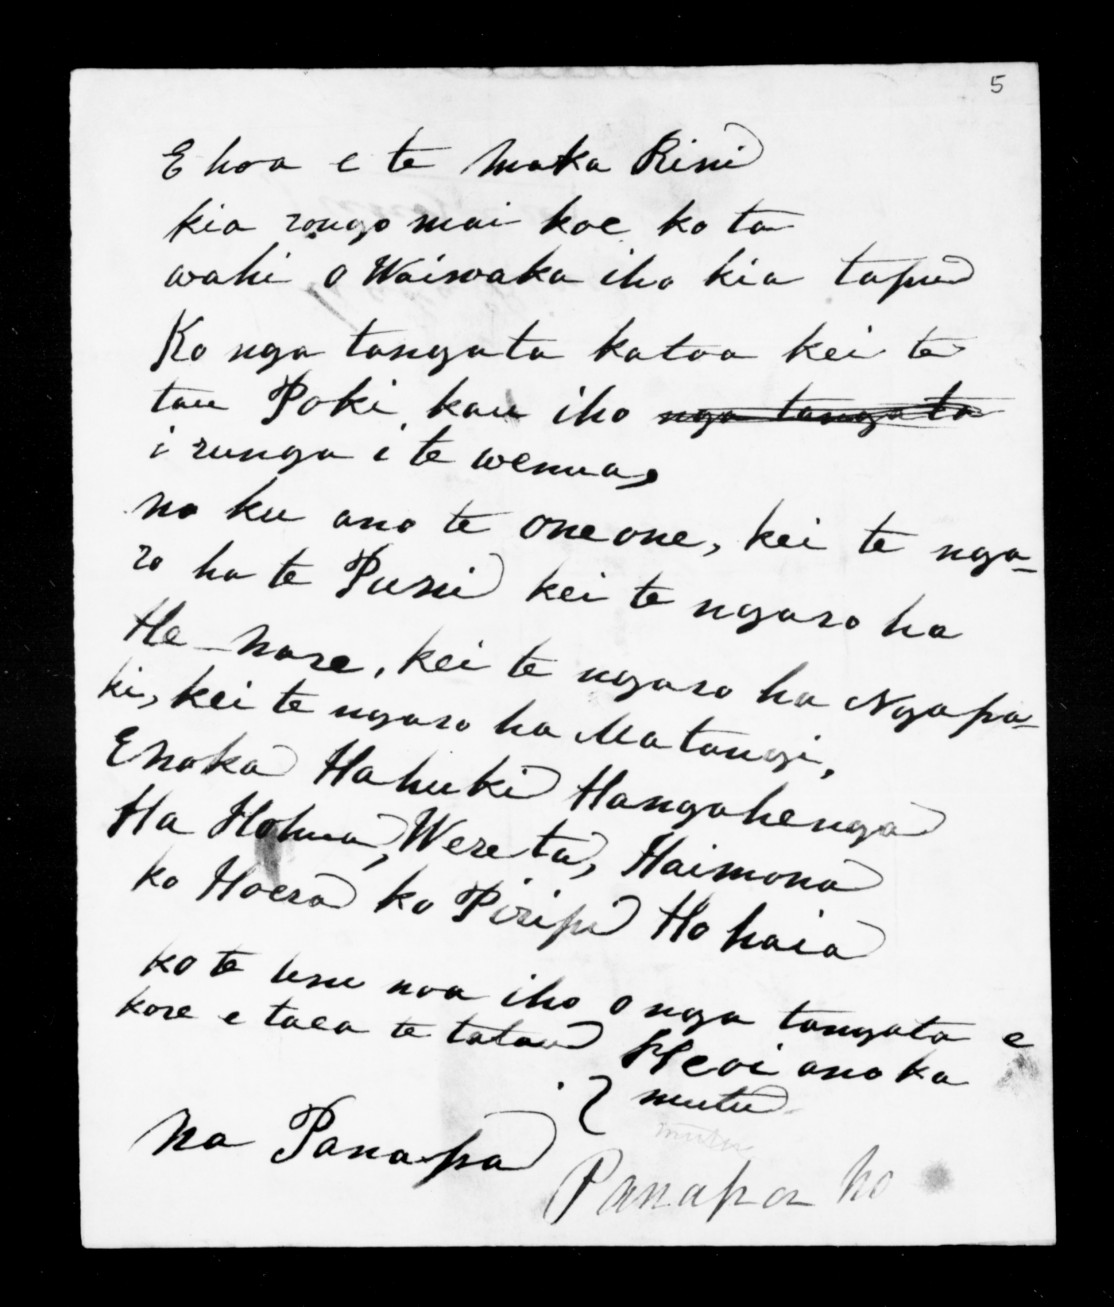 5
E hoa e te Maka Rini
kia rongo mai koe ko ta
wahi o Waiwaka iho kia tapu
Ko nga tangata katoa kei te
tau Poki kau iho nga tangata
i runga i te wenua,
no ku ano te oneone, kei te nga-
ro ha te Puni kei te ngaro ha
He-nare, kei te ngaro ha Ngapa-
ki, kei te ngaro ha Matangi,
Enoka Hahuki Hangahenga
Ha Hohua, Wereta, Haimona
ko Hoera ko Piripi Hohaia
ko te unu noa iho o nga tangata e
kore e taea te tatau Heoi ano ka
mutu
mutu
Na Panapa
Panapa ho